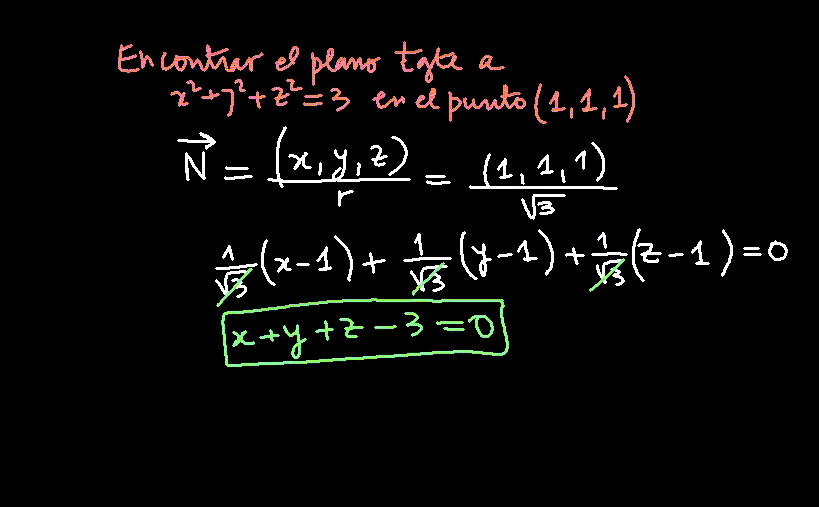 Encontrar el plano tgte a
x²+y²+z²=3 en el punto (1,1,1)
N⃗ = (x,y,z)/r = (1,1,1)/√3
1/√3 (x-1) + 1/√3 (y-1) + 1/√3 (z-1) = 0
x+y+z-3=0